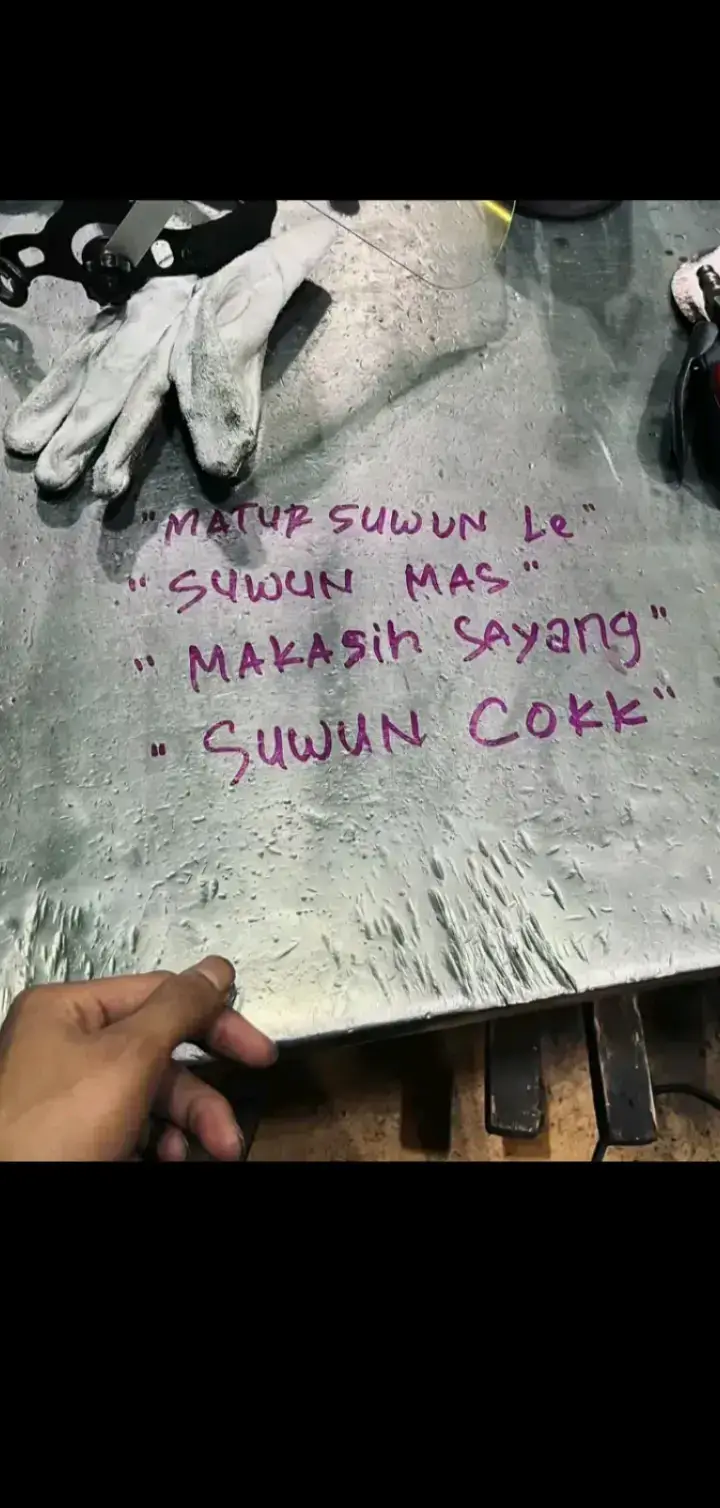 "MATUR SUWUN Le"
"SUWUN MAS"
"MAKASih SAyang"
"SUWUN COKK"